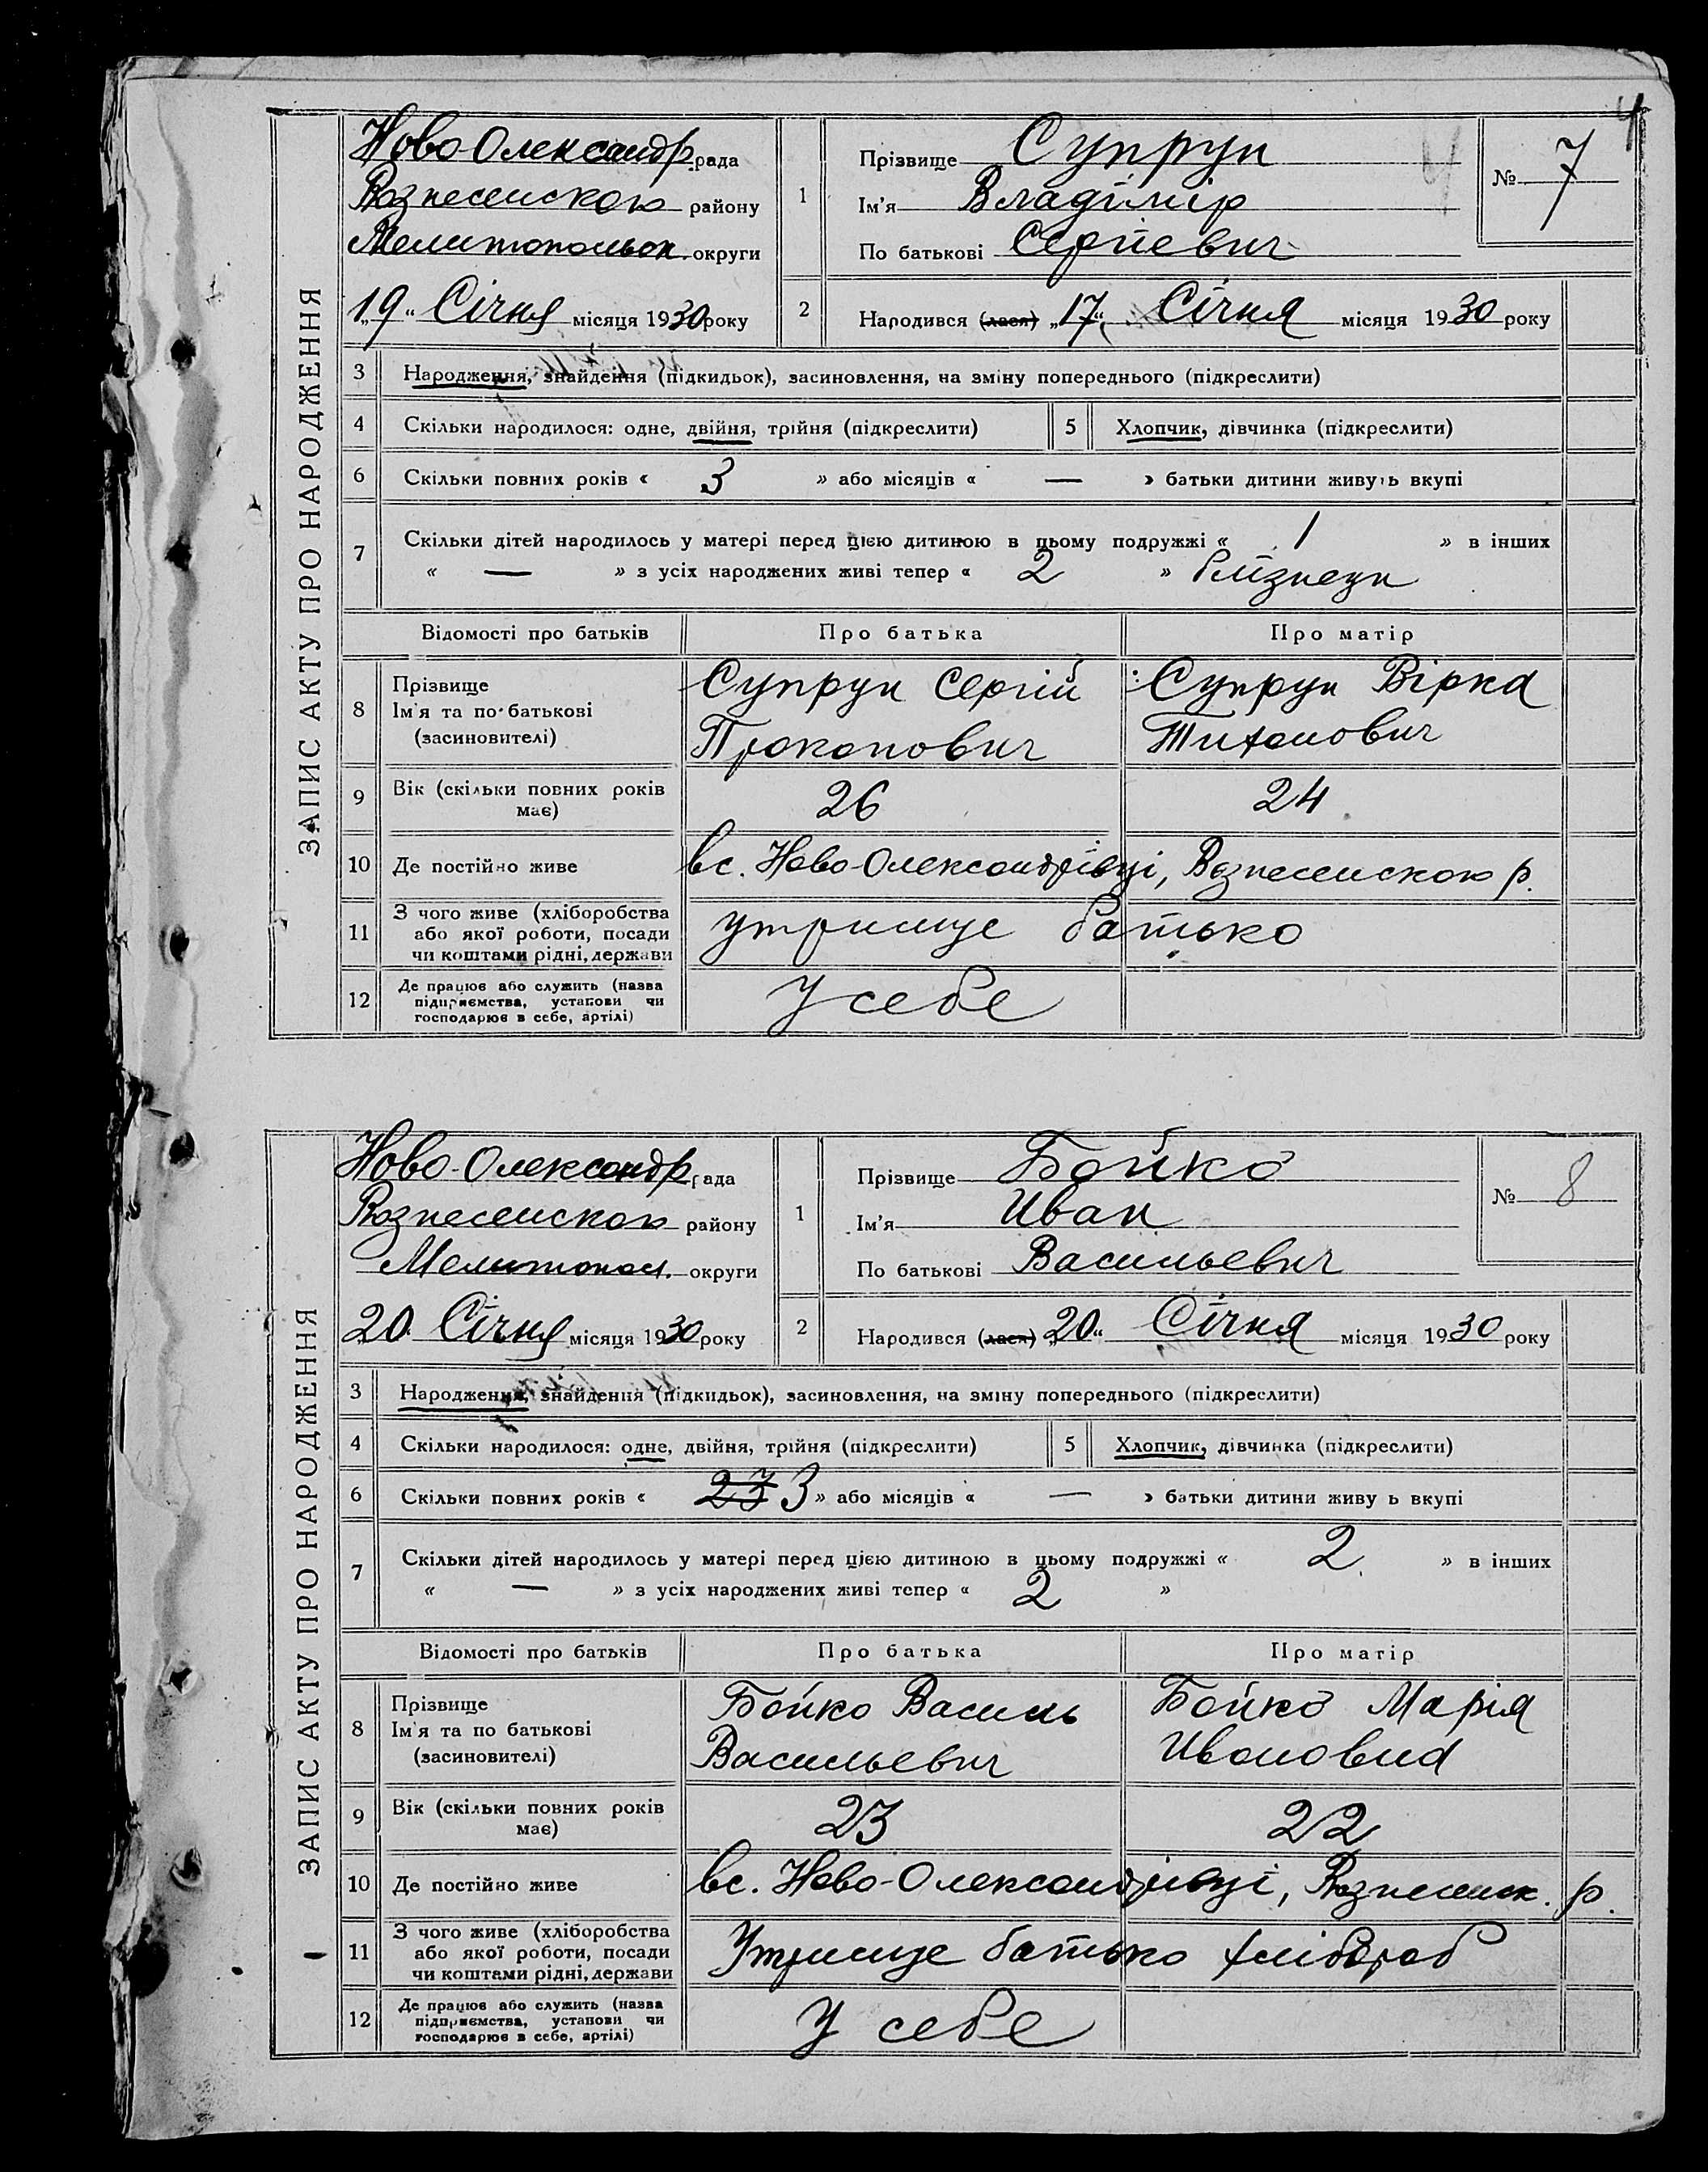 4
ЗАПИС АКТУ ПРО НАРОДЖЕННЯ
Ново-Олександр. рада
Вознесенского району
Мелитопольск. округи
„19“ Січня місяця 1930 року
1
Прізвище Супрун
Ім'я Владімір
По батькові Сергієвич
№ 7
2
Народився (лася) „17“ Січня місяця 1930 року
3 Народження, знайдення (підкидьок), засиновлення, на зміну попереднього (підкреслити)
4 Скільки народилося: одне, двійня, трійня (підкреслити) 5 Хлопчик, дівчинка (підкреслити)
6 Скільки повних років « 3 » або місяців « — » батьки дитини живуть вкупі
7 Скільки дітей народилось у матері перед цією дитиною в цьому подружжі « 1 » в інших
« — » з усіх народжених живі тепер « 2 »
Відомості про батьків Про батька Про матір
8 Прізвище
Ім'я та по-батькові
(засиновителі)
Супрун Сергій
Прокопович
Супрун Вірка
Тихонович
9 Вік (скільки повних років
має)
26 24
10 Де постійно живе вс. Ново-Олександрівці, Вознесенского р.
11 З чого живе (хліборобства
або якої роботи, посади
чи коштами рідні, держави
утримує батько
12 Де працює або служить (назва
підприємства, установи чи
господарює в себе, артілі)
У себе
ЗАПИС АКТУ ПРО НАРОДЖЕННЯ
Ново-Олександр. рада
Вознесенского району
Мелитопол. округи
20 Січня місяця 1930 року
1
Прізвище Бойко
Ім'я Иван
По батькові Васильевич
№ 8
2
Народився (лася) „20“ Січня місяця 1930 року
3 Народження, знайдення (підкидьок), засиновлення, на зміну попереднього (підкреслити)
4 Скільки народилося: одне, двійня, трійня (підкреслити) 5 Хлопчик, дівчинка (підкреслити)
6 Скільки повних років « 23 3 » або місяців « — » батьки дитини живу ь вкупі
7 Скільки дітей народилось у матері перед цією дитиною в цьому подружжі « 2 » в інших
« — » з усіх народжених живі тепер « 2 »
Відомості про батьків Про батька Про матір
8 Прізвище
Ім'я та по батькові
(засиновителі)
Бойко Василь
Васильевич
Бойко Марія
Ивановна
9 Вік (скільки повних років
має)
23 22
10 Де постійно живе вс. Ново-Олександрівці, Вознесенск. р.
11 З чого живе (хліборобства
або якої роботи, посади
чи коштами рідні, держави
Утримує батько хлібороб
12 Де працює або служить (назва
підприємства, установи чи
господарює в себе, артілі)
У себе